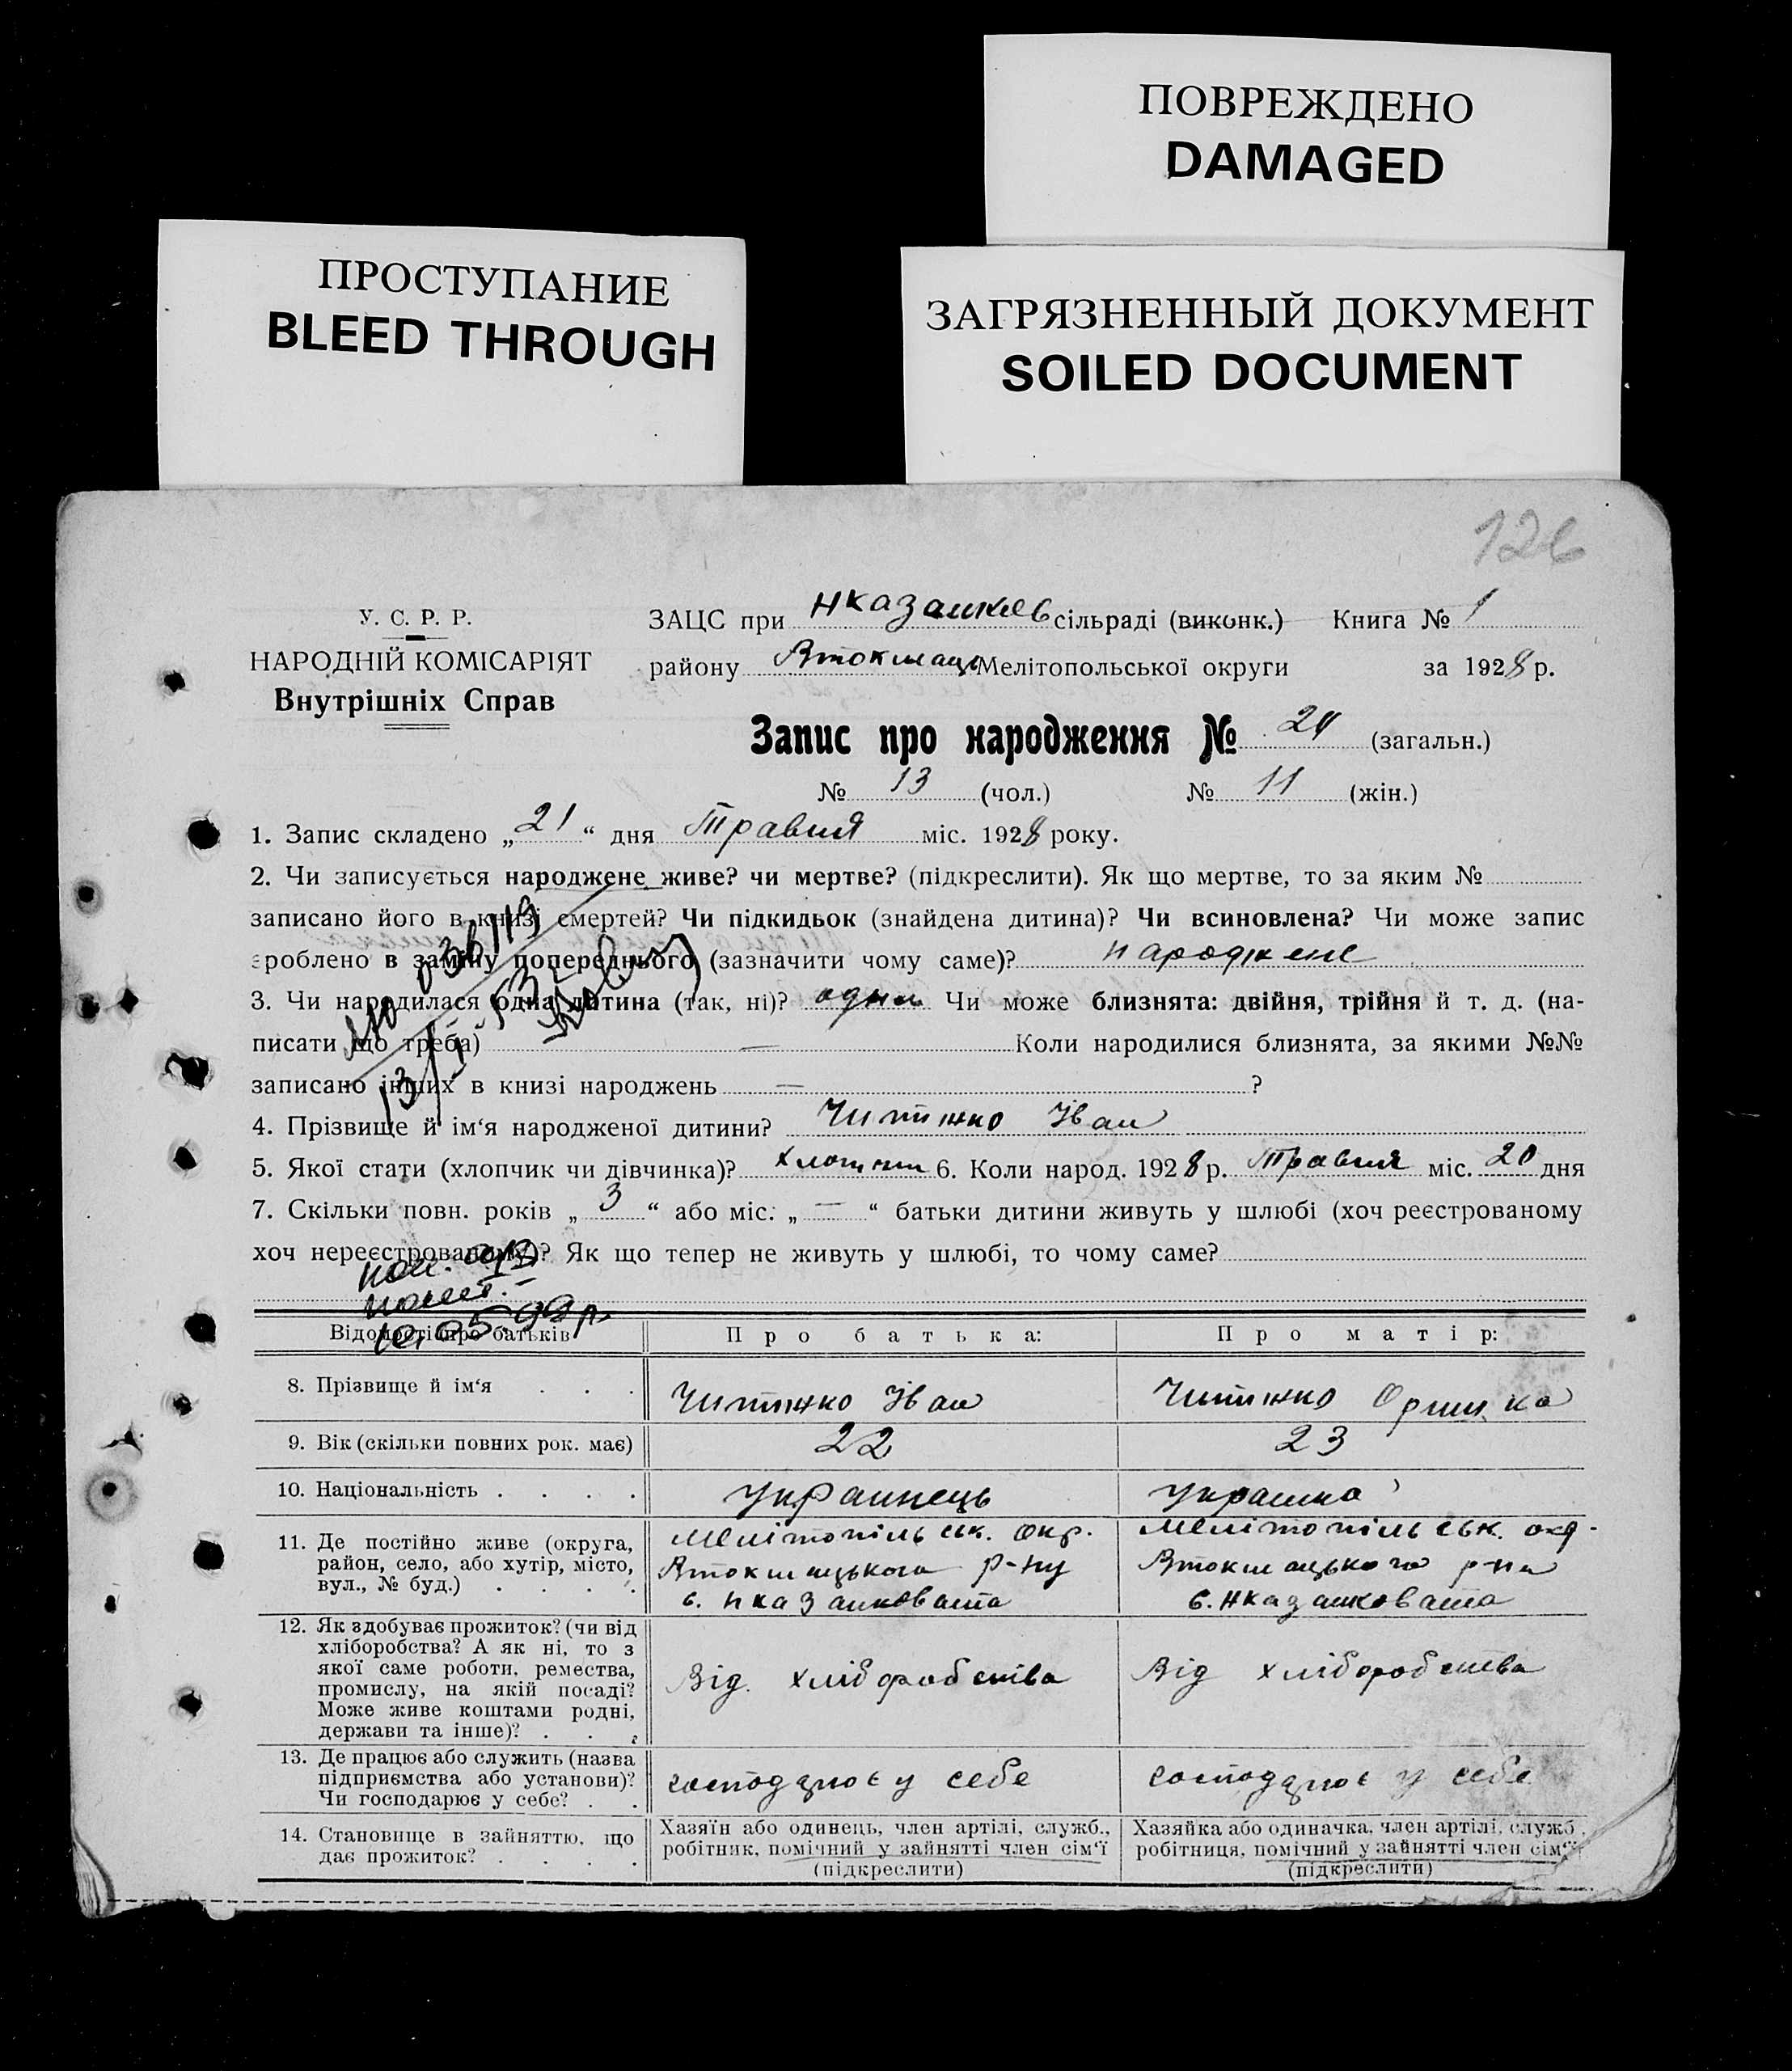 ПОВРЕЖДЕНО
DAMAGED
ПРОСТУПАНИЕ
BLEED THROUGH
ЗАГРЯЗНЕННЫЙ ДОКУМЕНТ
SOILED DOCUMENT
126
У. С. Р. Р.
НАРОДНІЙ КОМІСАРІЯТ
Внутрішніх Справ
ЗАЦС при сільраді (виконк.) Книга № 1
району Втокмаць Мелітопольської округи за 1928 р.
Запис про народження № 24 (загальн.)
№ 13 (чол.) № 11 (жін.)
1. Запис складено „21“ дня Травня міс. 1928 року.
2. Чи записується народжене живе? чи мертве? (підкреслити). Як що мертве, то за яким №
записано його в книзі смертей? Чи підкидьок (знайдена дитина)? Чи всиновлена? Чи може запис
зроблено в заміну попереднього (зазначити чому саме)? народжене
3. Чи народилася одна дитина (так, ні)? одна Чи може близнята: двійня, трійня й т. д. (на-
писати що треба) — Коли народилися близнята, за якими №№
записано інших в книзі народжень — ?
4. Прізвище й ім‘я народженої дитини? Іван
5. Якої стати (хлопчик чи дівчинка)? 6. Коли народ. 1928 р. Травня міс. 20 дня
7. Скільки повн. років „3“ або міс. „—“ батьки дитини живуть у шлюбі (хоч реєстрованому
хоч нереєстрованому)? Як що тепер не живуть у шлюбі, то чому саме?
Відомості про батьків
П р о б а т ь к а:
П р о м а т і р:
8. Прізвище й ім‘я . . .
Іван
9. Вік (скільки повних рок. має)
22
23
10. Національність . . . .
Украинець
Украинка
11. Де постійно живе (округа,
район, село, або хутір, місто,
вул., № буд.) . . . .
Мелітопільськ. окр.
Втокмацького р-ну
с. Нказанковата
Мелітопільськ. окр.
Втокмацького р-на
с. Нказанковата
12. Як здобуває прожиток? (чи від
хліборобства? А як ні, то з
якої саме роботи, ремества,
промислу, на якій посаді?
Може живе коштами родні,
держави та інше)? . . .
Від хліборобства
Від хліборобства
13. Де працює або служить (назва
підприємства або установи)?
Чи господарює у себе? . .
у себе
у себе
14. Становище в зайняттю, що
дає прожиток? . . . .
Хазяїн або одинець, член артілі, служб.,
робітник, помічний у зайнятті член сім‘ї
(підкреслити)
Хазяйка або одиначка, член артілі, служб.,
робітниця, помічний у зайнятті член сім‘ї
(підкреслити)